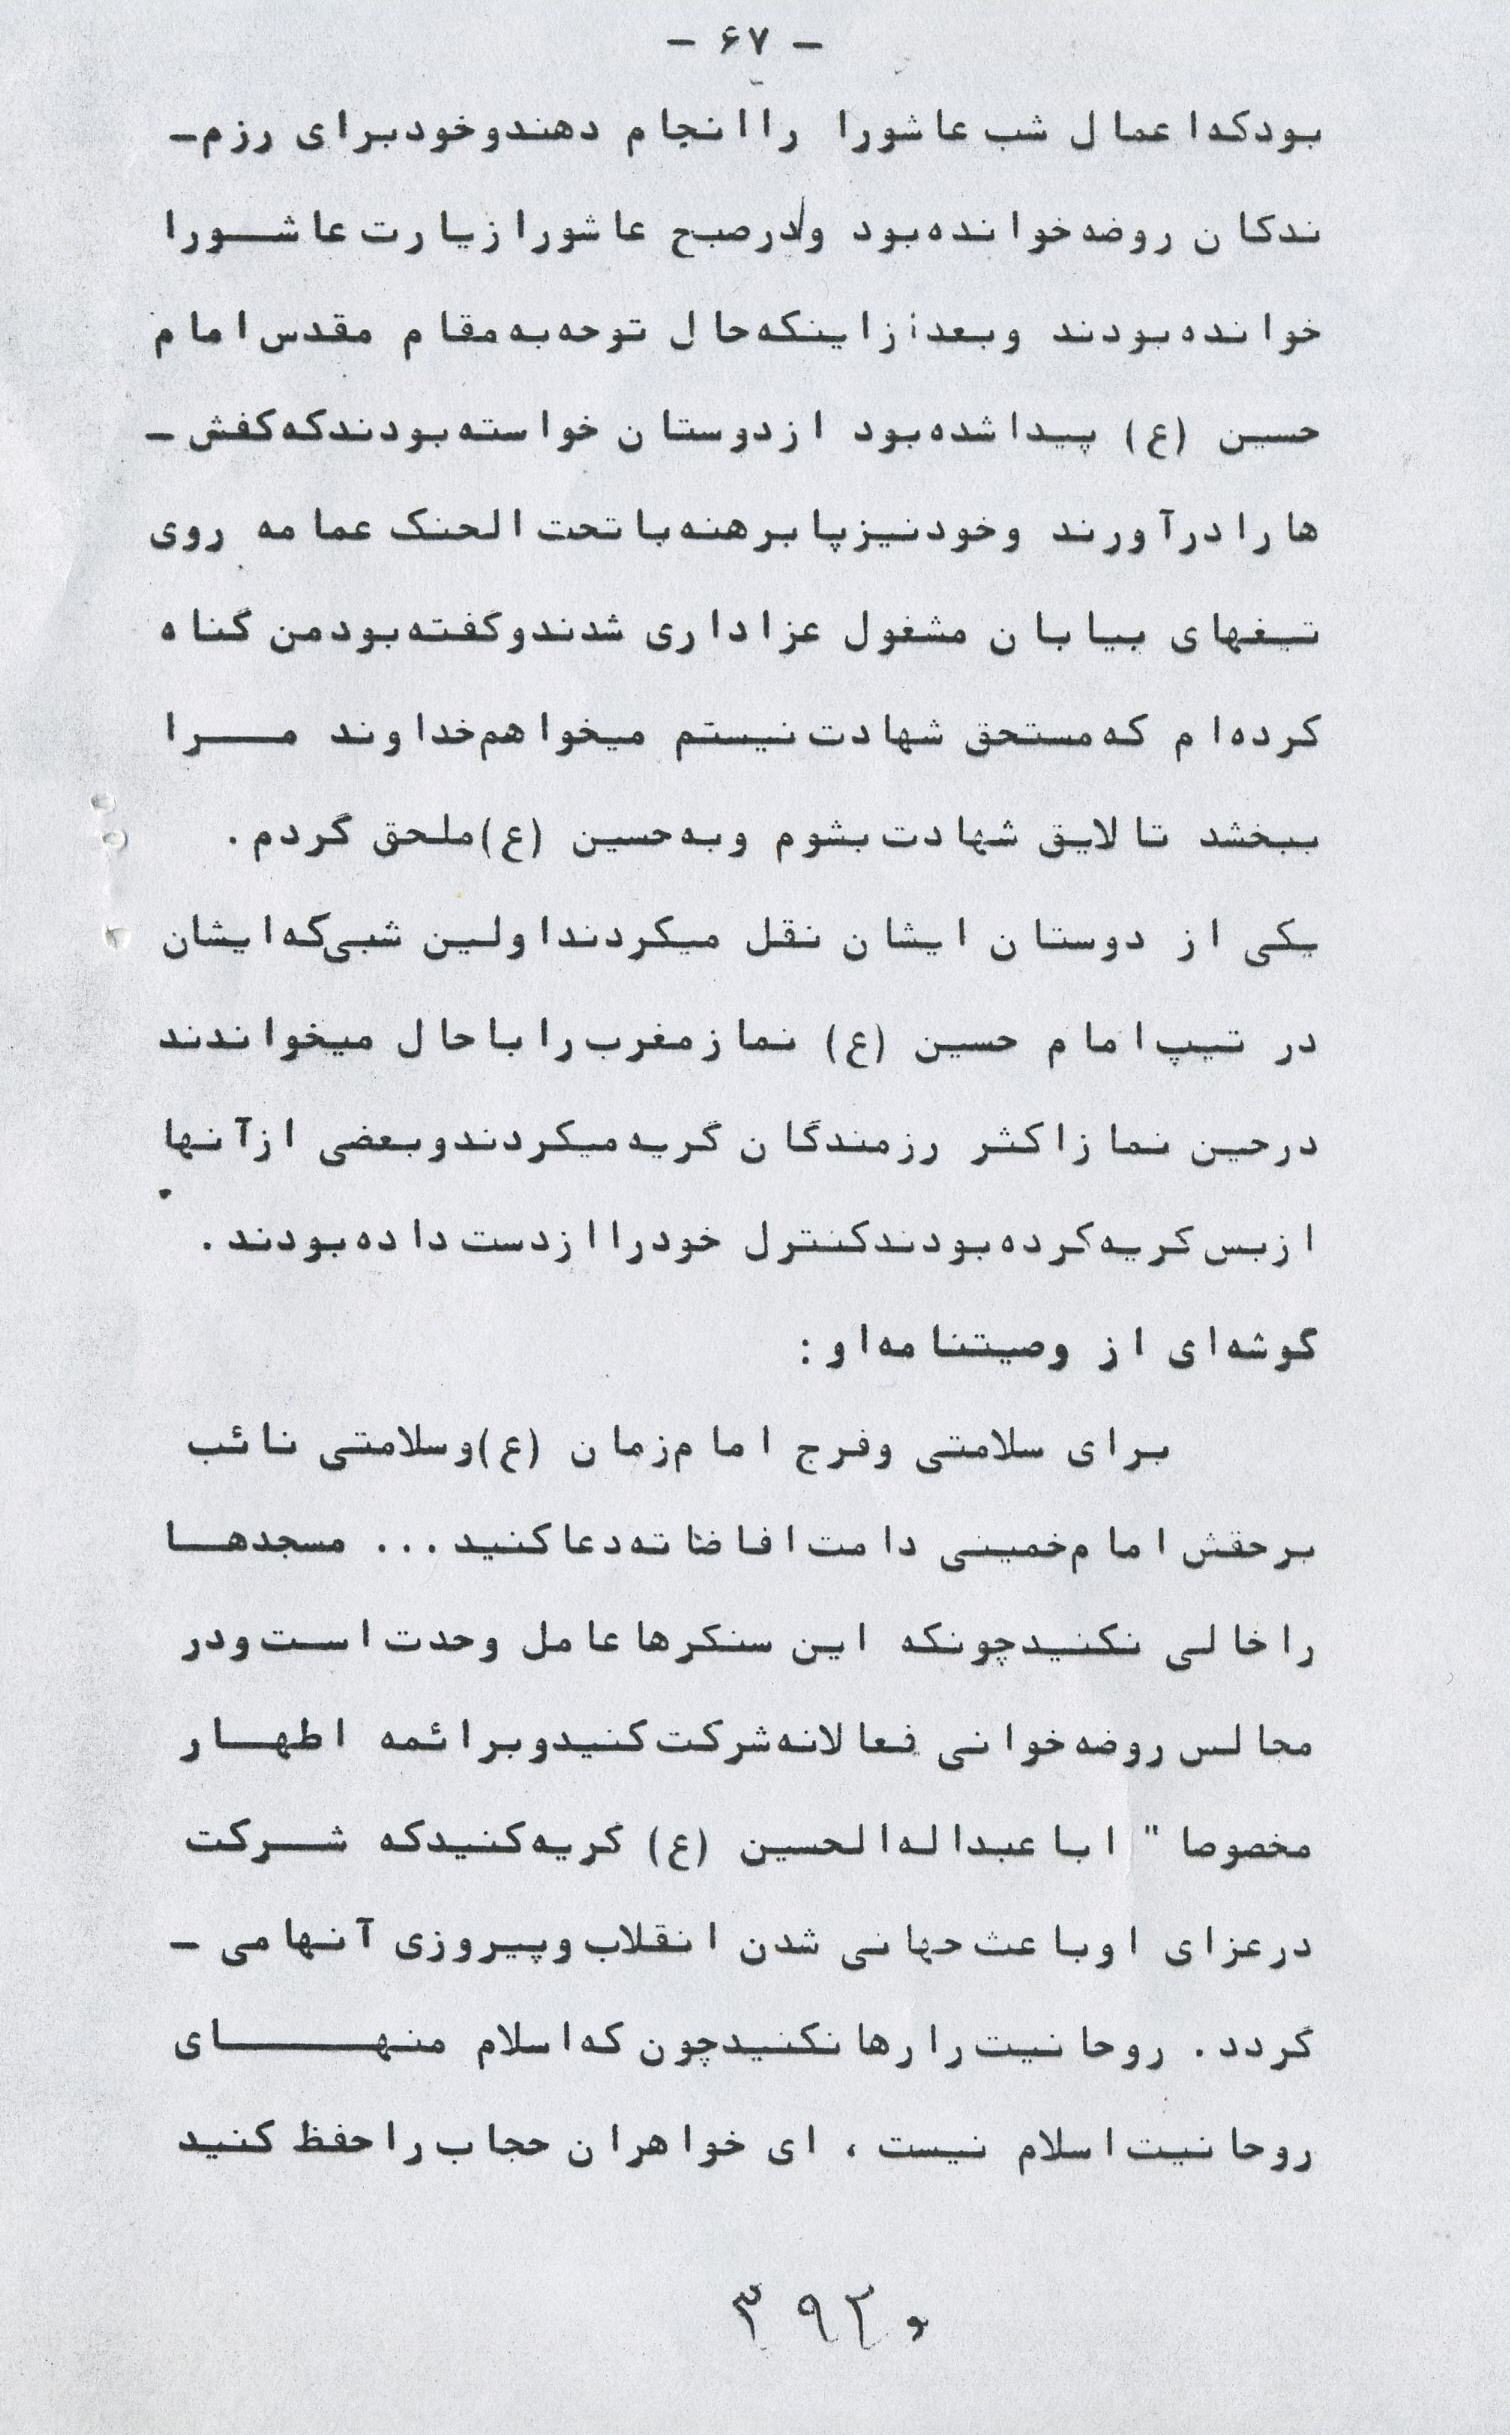 - ۶۷ -
بودکه اعمال شب عاشورا را انجام دهند و خود برای رزم-
ندکان روضه خوانده بود و در صبح عاشورا زیارت عاشورا
خوانده بودند و بعد از اینکه حال توحه به مقام مقدس امام
حسین (ع) پیدا شده بود از دوستان خواسته بودند که کفش-
ها را درآورند و خود نیز پا برهنه با تحت الحنک عمامه روی
تیغهای بیابان مشغول عزاداری شدند و گفته بود من گناه
کرده ام که مستحق شهادت نیستم میخواهم خداوند مرا
ببخشد تا لایق شهادت بشوم و به حسین (ع) ملحق گردم .
یکی از دوستان ایشان نقل میکردند اولین شبی که ایشان
در تیپ امام حسین (ع) نماز مغرب را با حال میخواندند
در حین نماز اکثر رزمندگان گریه میکردند و بعضی از آنها
از بس کریه کرده بودند کنترل خود را از دست داده بودند .
گوشه ای از وصیتنامه او :
برای سلامتی و فرج امام زمان (ع) و سلامتی نائب
برحقش امام خمینی دامت افاضاته دعا کنید ... مسجدها
را خالی نکنید چونکه این سنکرها عامل وحدت است و در
محالس روضه خوانی فعالانه شرکت کنید و بر ائمه اطهار
مخصوصا " ابا عبداله الحسین (ع) گریه کنید که شرکت
در عزای او باعث حهانی شدن انقلاب و پیروزی آنها می -
گردد . روحانیت را رها نکنید چون که اسلام منهای
روحانیت اسلام نیست ، ای خواهران حجاب را حفظ کنید